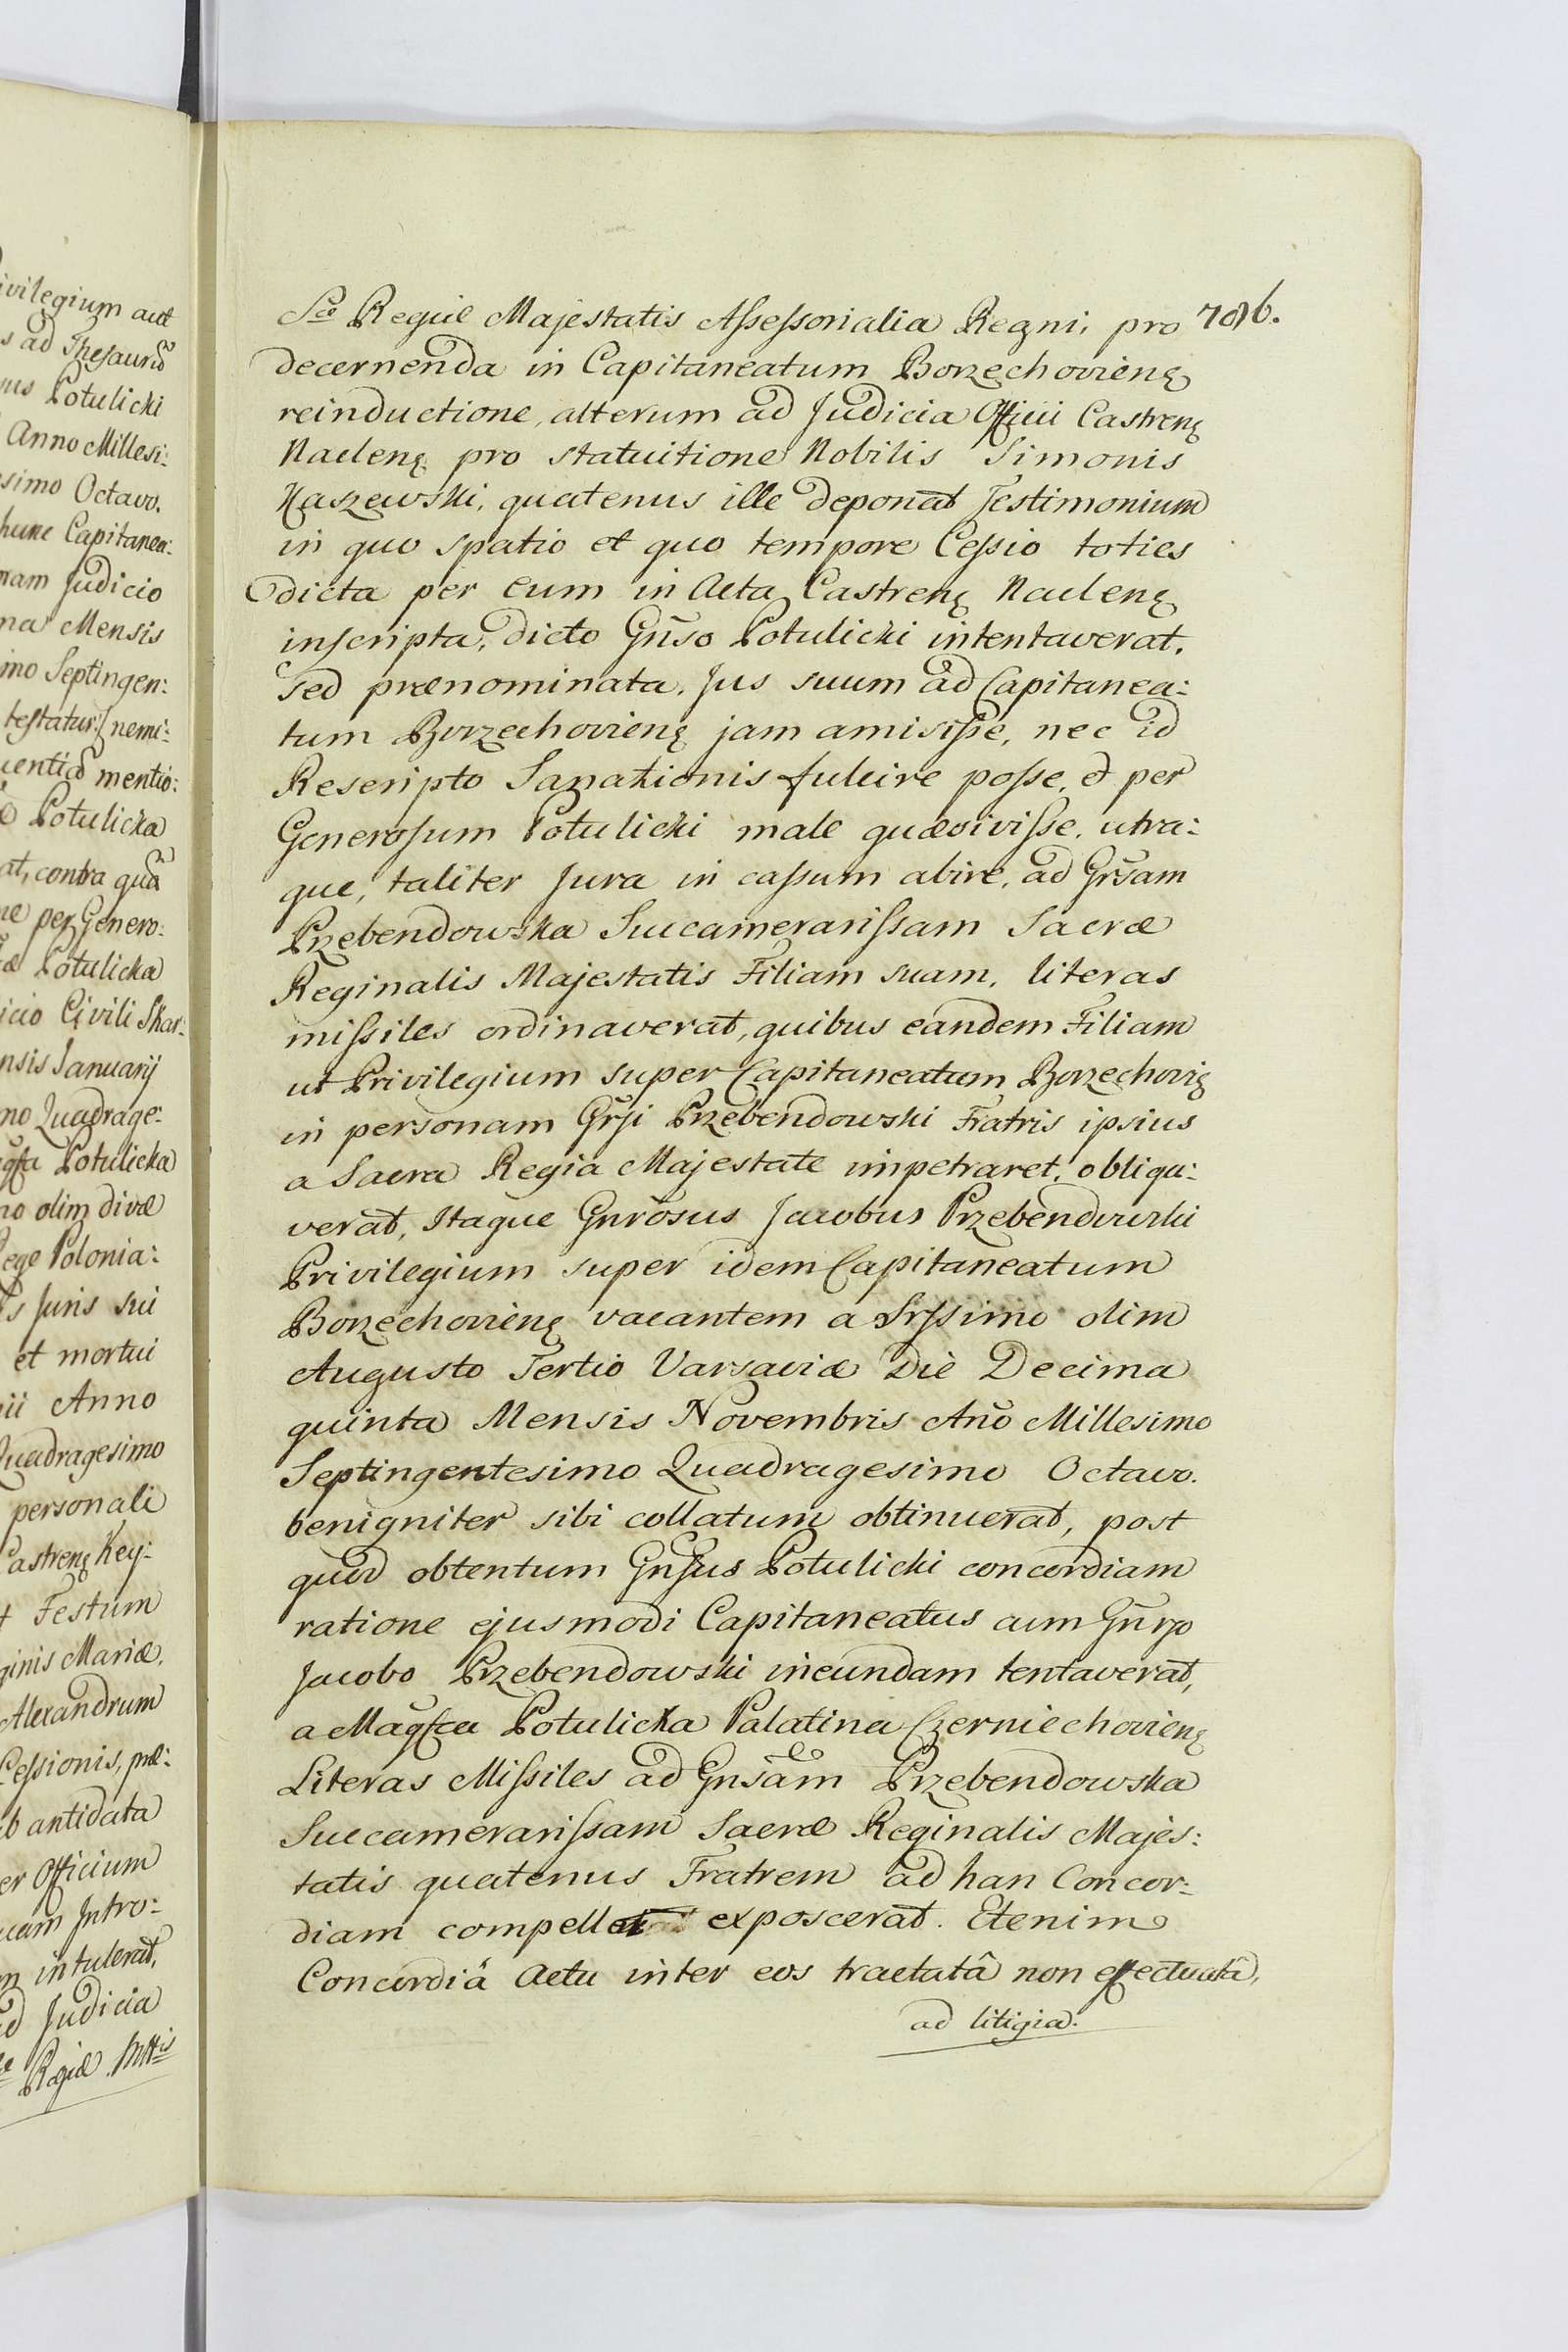 ivilegium aut
s ad Thesaurũ
nus Potulicki
Anno Millesi:
simo Octavo.
hunc Capitanea:
nam Judicio
na Mensis
imo Septingen:
testatur:/ nemi:
uentiã mentio:
Potulicka
at, contra quã
ne per Genero:
æ Potulicka
icio Civili Skar:
nsis Januarij
mo Quadrage:
Potulicka
no olim divæ
ege Polonia:
s Juris sui
et mortui
ii Anno
Quadragesimo
personali
Castrenȩ Key:
t Festum
ginis Mariæ,
Alexandrum
Cessionis, præ:
b antidata
er Officium
uam Intro:
m intulerat,
ad Judicia
Regiæ Mttis
786.
Scæ Regiæ Majestatis Assessorialia Regni, pro
decernenda in Capitaneatum Borzechovienȩ
reinductione, alterum ad Judicia Officii Castrenȩ
Naclenȩ pro statuitione Nobilis Simonis
Kaszewski, quatenus ille deponat Testimonium
in quo spatio et quo tempore Cessio toties
dicta per eum in Acta Castrenȩ Naclenȩ
inscripta, dicto Gñso Potulicki intentaverat.
Sed prænominata, Jus suum ad Capitanea:
tum Borzechovienȩ jam amisisse, nec id
Rescripto Sanationis fulcire posse, et per
Generosum Potulicki male quæsivisse, utra:
que, taliter Jura in cassum abire, ad Gr̃sam
Przebendowska Succamerarissam Sacræ
Reginalis Majestatis Filiam suam, literas
missiles ordinaverat, quibus eandem Filiam
ut Privilegium super Capitaneatum Borzechoviȩ
in personam Gr̃si Przebendowski Fratris ipsius
a Sacra Regia Majestate impetraret, obliga:
verat, Itaque Gnrõsus Jacobus Przebendowski
Privilegium super idem Capitaneatum
Borzechovienȩ vacantem a Srssimo olim
Augusto Tertio Varsaviæ Die Decima
quinta Mensis Novembris Añō Millesimo
Septingentesimo Quadragesimo Octavo.
benigniter sibi collatum obtinuerat, post
quod obtentum Gñsus Potulicki concordiam
ratione ejusmodi Capitaneatus cum Gñrso
Jacobo Przebendowski ineundam tentaverat,
a Magfca Potulicka Palatina Czerniechovienȩ
Literas Missiles ad Gnsãm Przebendowska
Succamerarissam Sacræ Reginalis Majes:
tatis quatenus Fratrem ad han Concor:
diam compellet exposcerat. Etenim
Concordiâ Actu inter eos tractatâ non effectuatâ,
ad litigia.